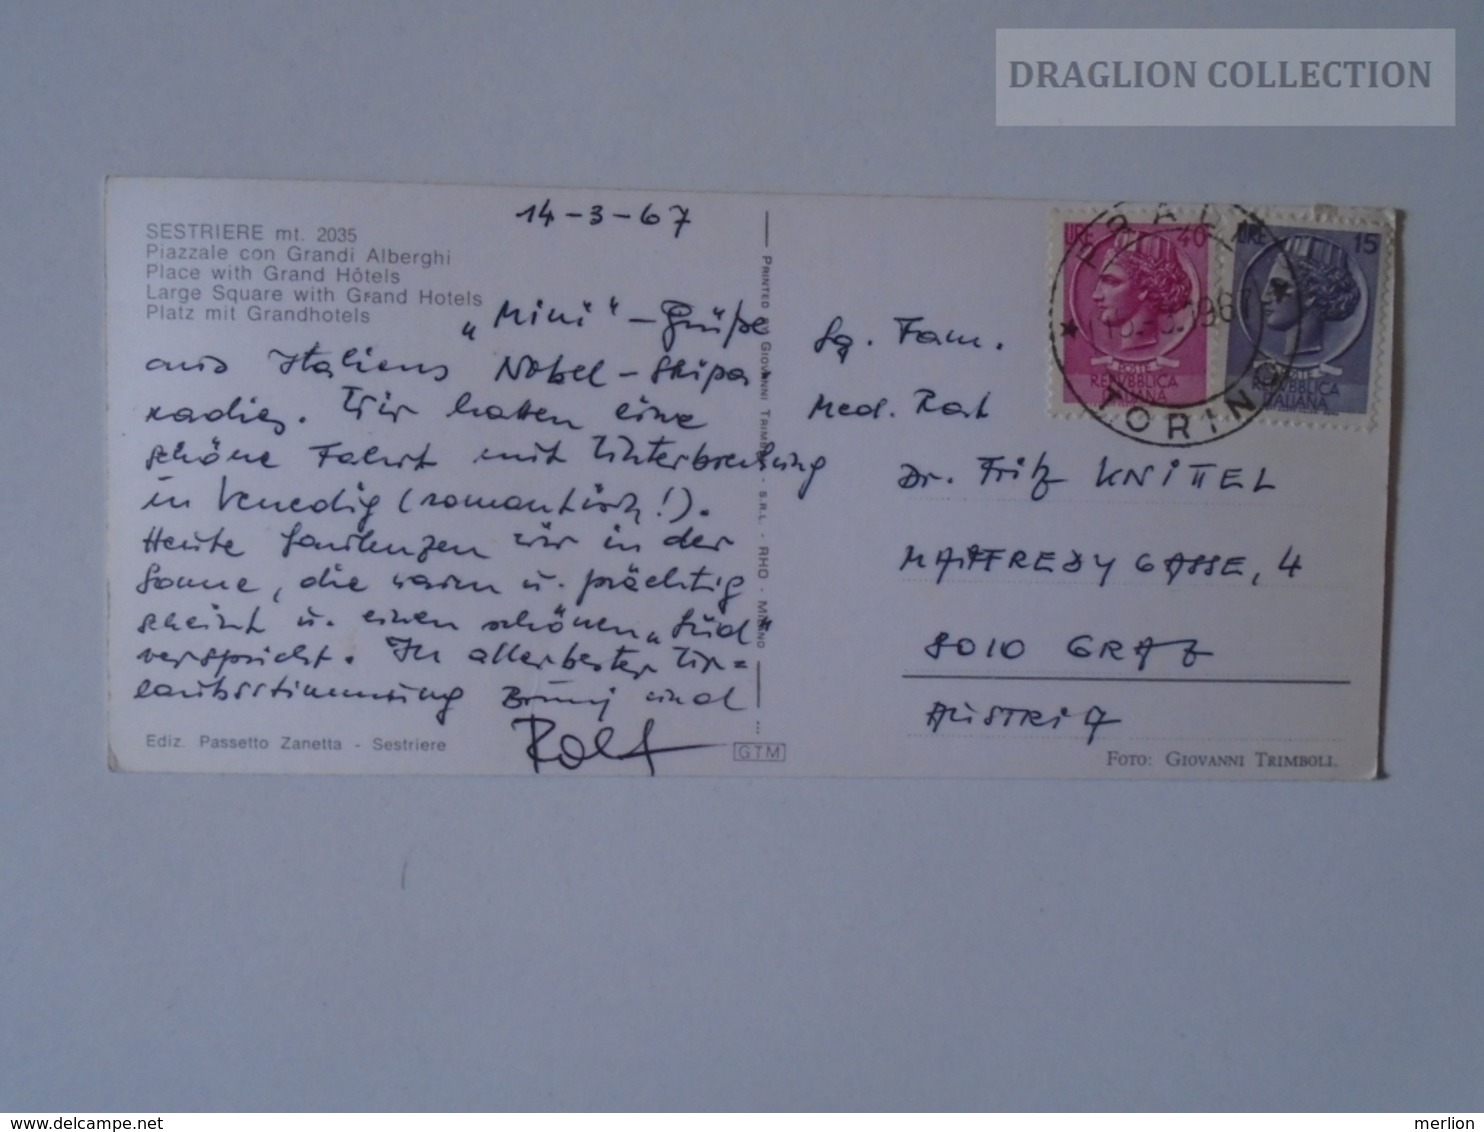 DRAGLION COLLECTION
14-3-67
SESTRIERE mt. 2035
Piazzale con Grandi Alberghi
Place with Grand Hôtels
Large Square with Grand Hotels
Platz mit Grandhotels
„Mini“ - Grüße
aus Italiens Nobel-Skipa-
radies. Wir hatten eine
schöne Fahrt mit Unterbrechung
in Venedig (romantisch!).
Heute faulenzen wir in der
Sonne, die warm u. prächtig
scheint u. einen schönen „Süd“
verspricht. In allerbester Ur=
laubsstimmung und
Rolf
Ediz. Passetto Zanetta - Sestriere
PRINTED BY GIOVANNI TRIMBOLI - S.R.L. - RHO - MILANO
GTM
LIRE 40
POSTE
REPVBBLICA
ITALIANA
LIRE 15
POSTE
REPVBBLICA
ITALIANA
1967
TORINO
Sg. Fam.
Med. Rat
Dr. Fritz KNITTEL
MAIFFREDYGASSE, 4
8010 GRAZ
AUSTRIA
FOTO: GIOVANNI TRIMBOLI.
merlion